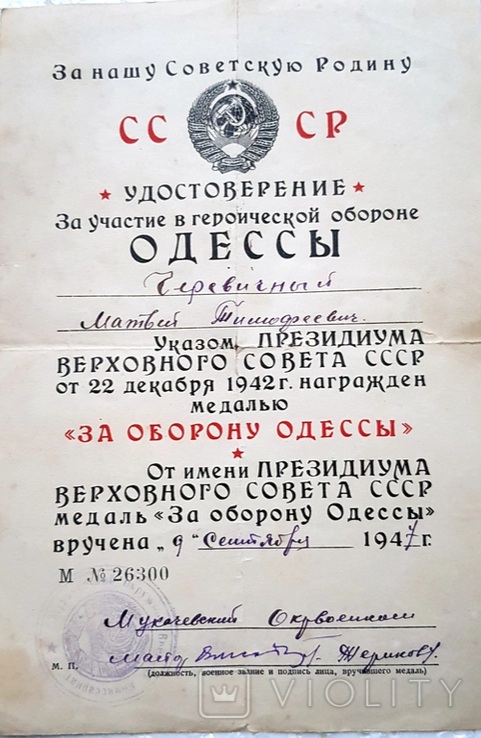 За нашу Советскую Родину
СС СР
★ УДОСТОВЕРЕНИЕ ★
За участие в героической обороне
ОДЕССЫ
Черевичный
Матвей Тимофеевич.
Указом ПРЕЗИДИУМА
ВЕРХОВНОГО СОВЕТА СССР
от 22 декабря 1942 г. награжден
медалью
«ЗА ОБОРОНУ ОДЕССЫ»
★
От имени ПРЕЗИДИУМА
ВЕРХОВНОГО СОВЕТА СССР
медаль «За оборону Одессы»
вручена „9" Сентября 1947 г.
М № 26300
Мукачевский Окрвоенком
М. П.
(должность, военное звание и подпись лица, вручившего медаль)
VIOLITY